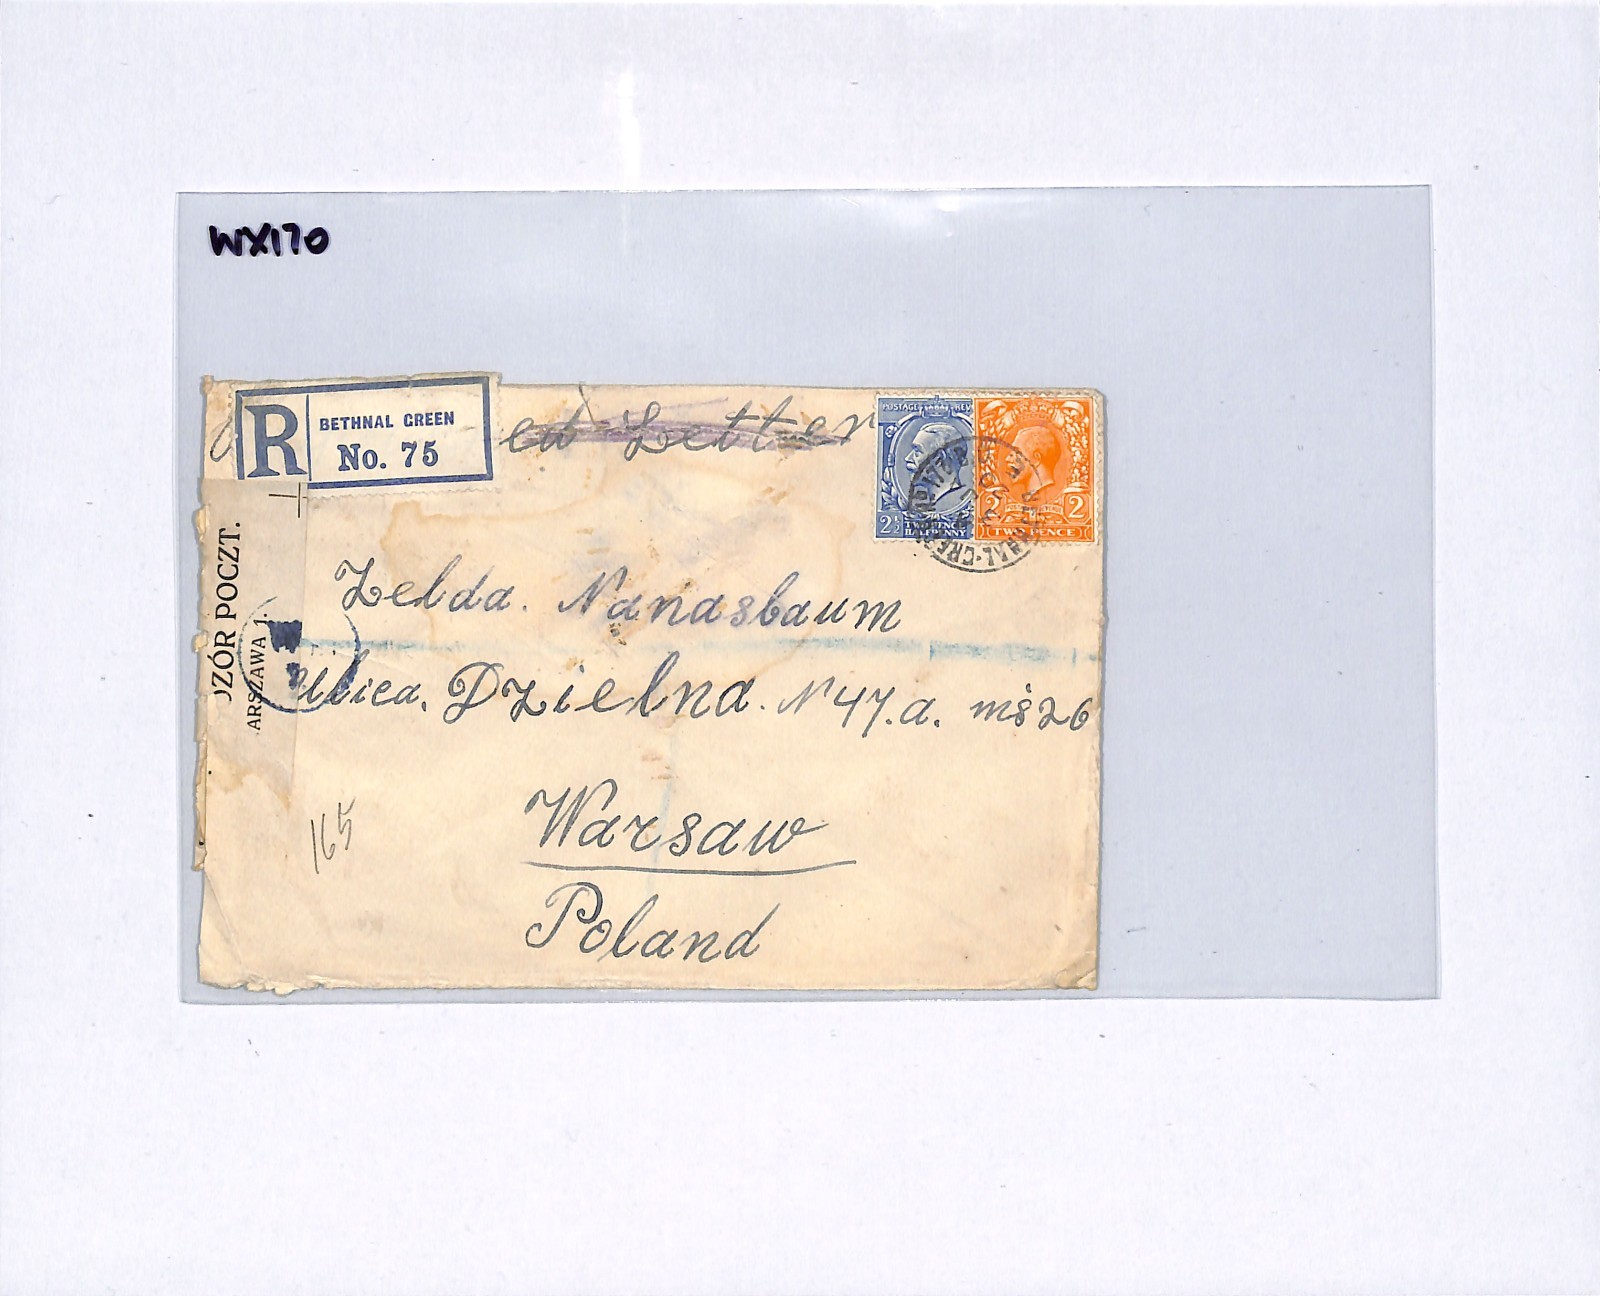 WX170
R
BETHNAL GREEN
No. 75
ed Letter
POSTAGE REV
2½
TWO PENCE
HALFPENNY
2
TWO PENCE
ZÓR POCZT.
ARSZAWA 1.
Zelda. Nanasbaum
Ulica. Dzielna. N 47.a. mś 26
Warsaw
Poland
165